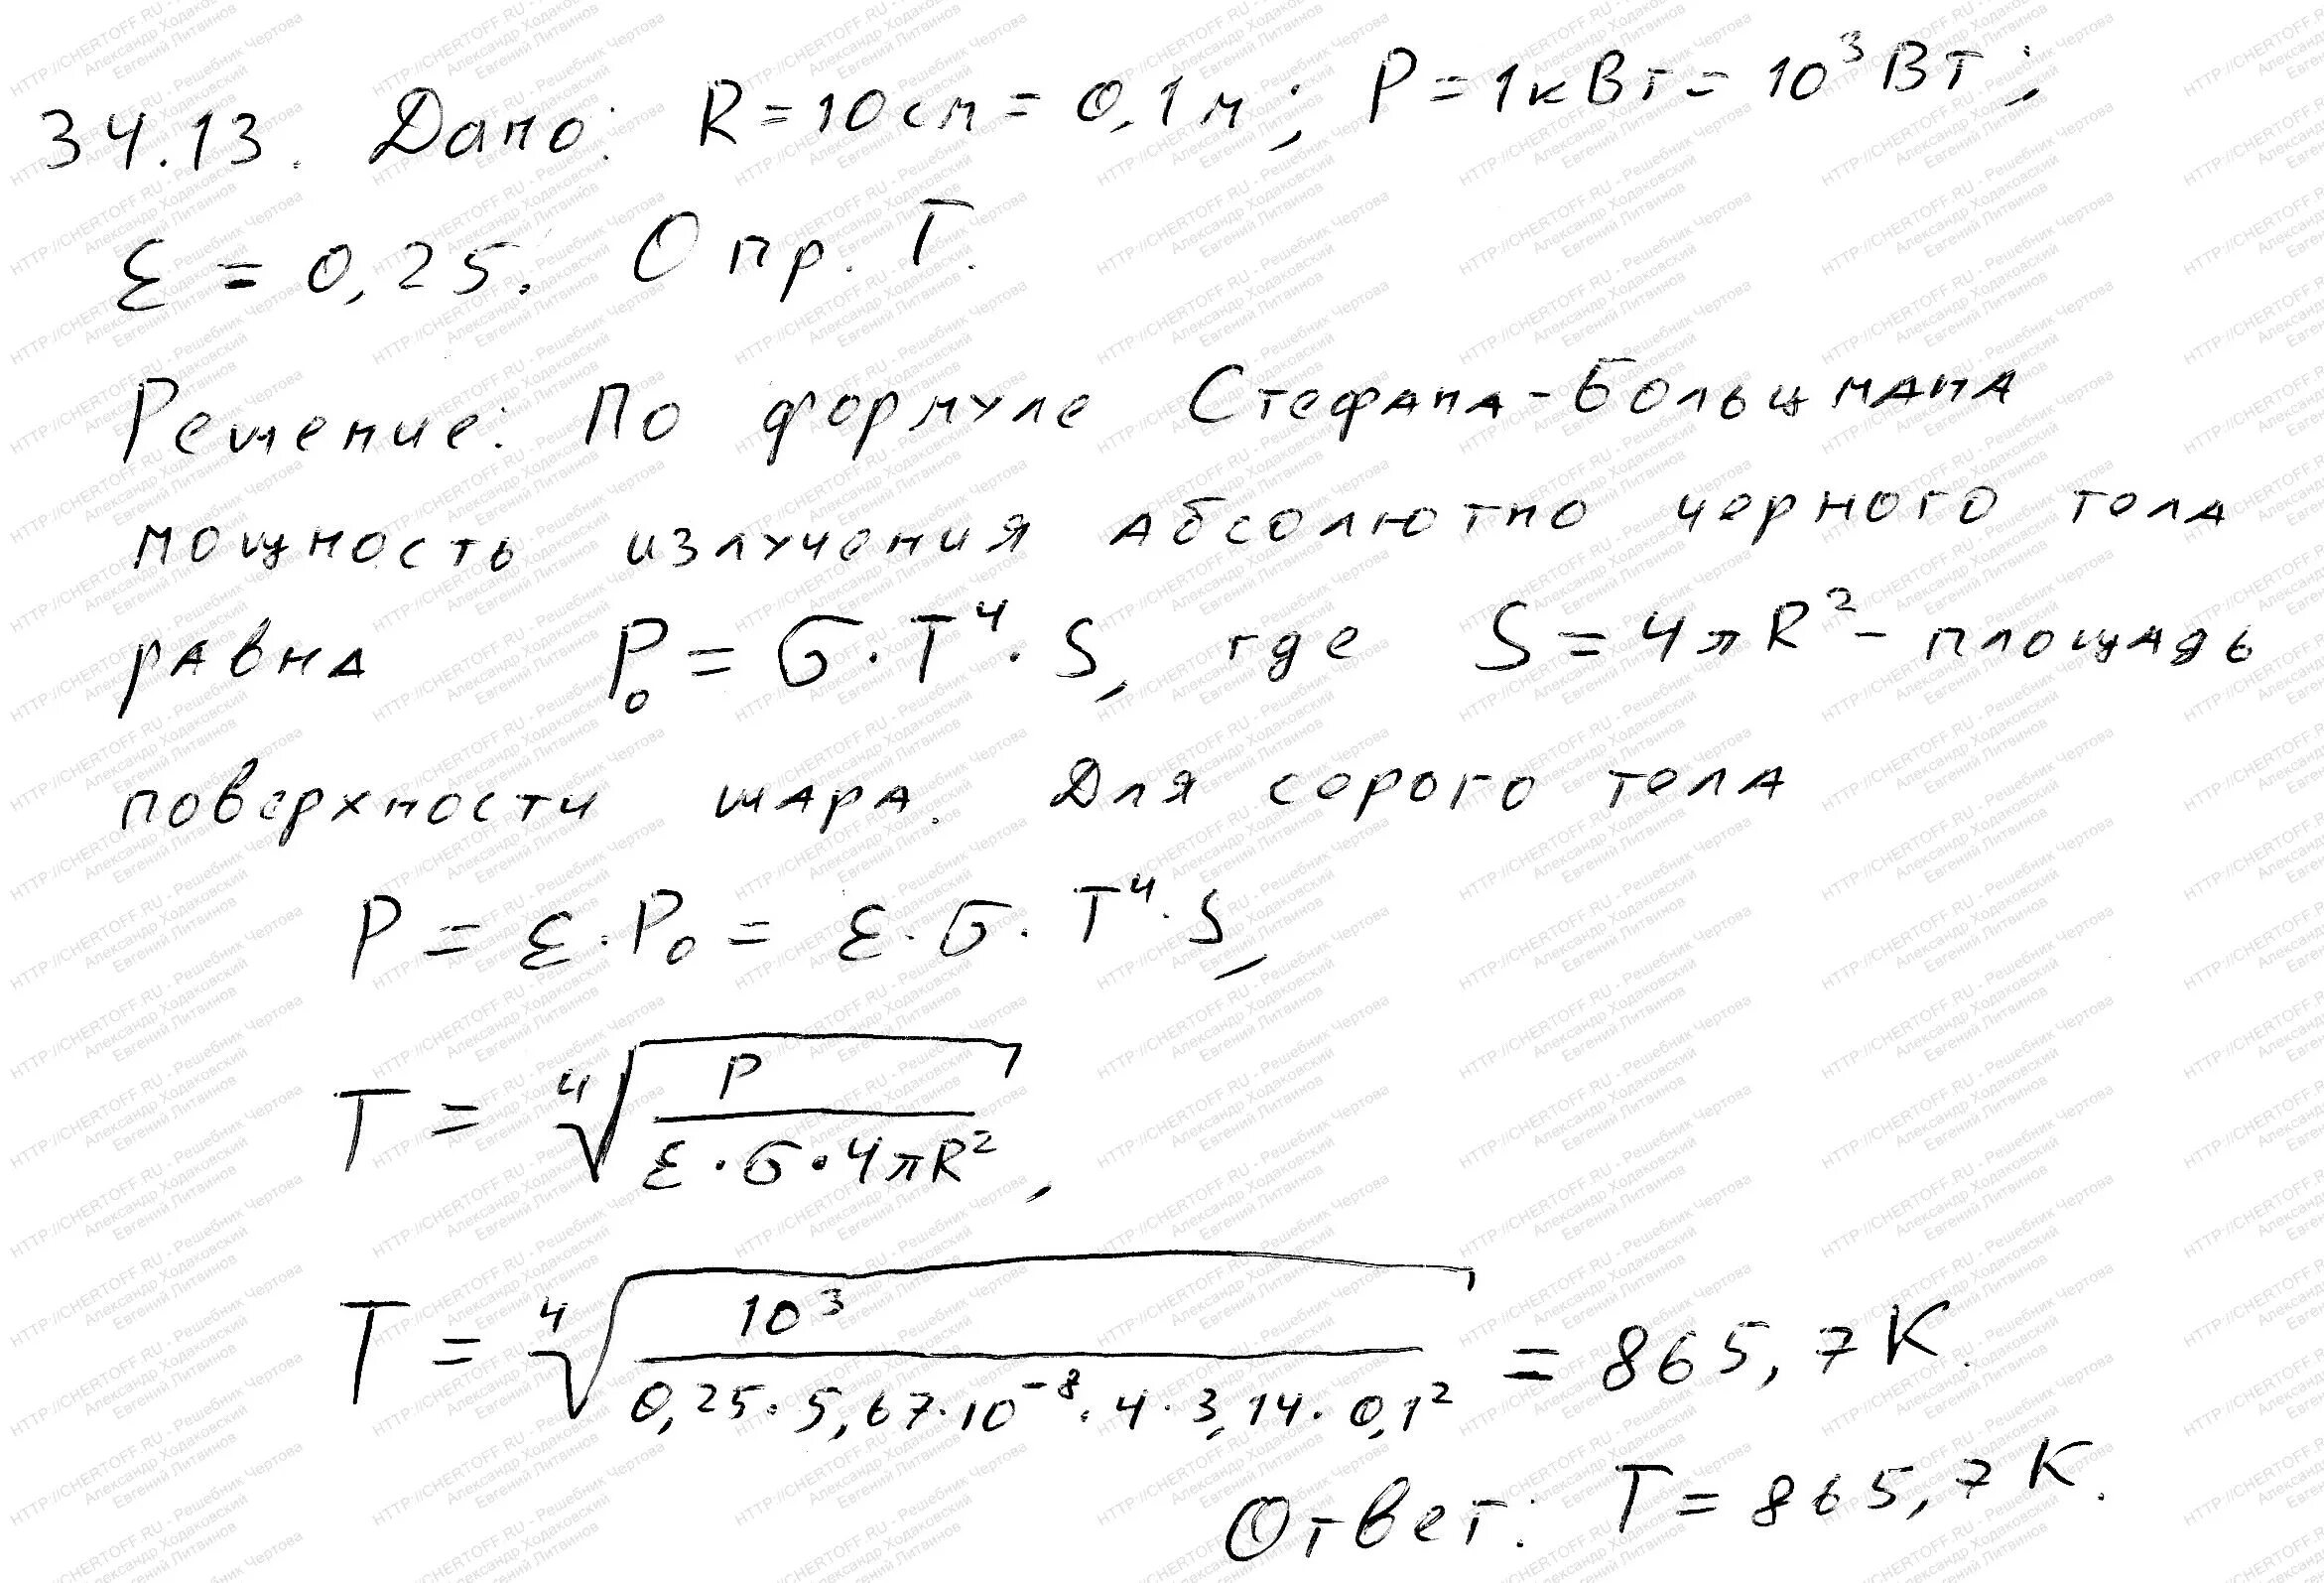 34.13. Дано: R = 10 см = 0,1 м; P = 1 кВт = 10³ Вт;
ε = 0,25. Опр. T.
Решение: По формуле Стефана-Больцмана
мощность излучения абсолютно черного тела
равна P₀ = σ·T⁴·S, где S = 4πR² - площадь
поверхности шара. Для серого тела
P = ε·P₀ = ε·σ·T⁴·S,
T = ⁴√(P / (ε·σ·4πR²)),
T = ⁴√(10³ / (0,25·5,67·10⁻⁸·4·3,14·0,1²)) = 865,7 К.
Ответ: T = 865,7 К.
HTTP://CHERTOFF.RU - Решебник Чертова
Александр Ходаковский
Евгений Литвинов